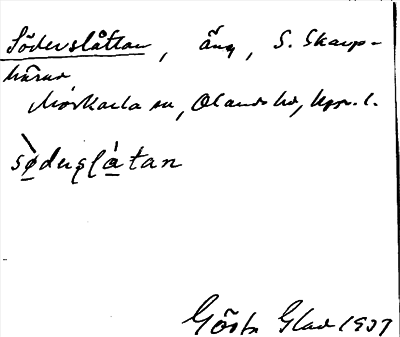 Söderslåttan, äng, S. Skarp-
härad
Morkarla sn, Olands hd, Upp. l.
sø̀deṣl̥átan
Gösta Glad 1937